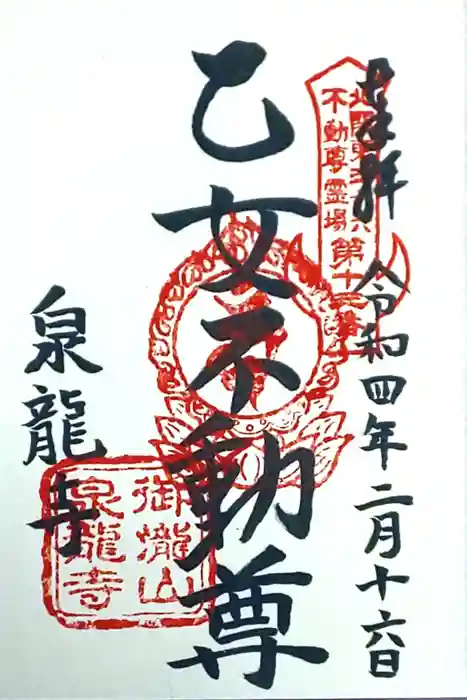 奉拝 令和四年二月十六日
北関東三十六
不動尊霊場第十三番
乙女不動尊
泉龍寺
御瀧山
泉龍寺